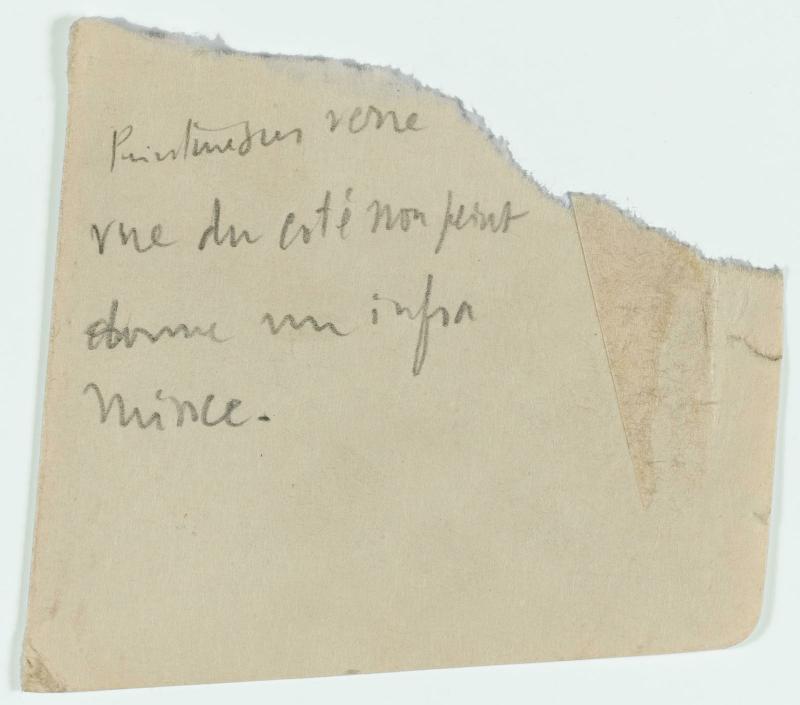 Peinture sur verre
vue du coté non peint
donne un infra
mince.